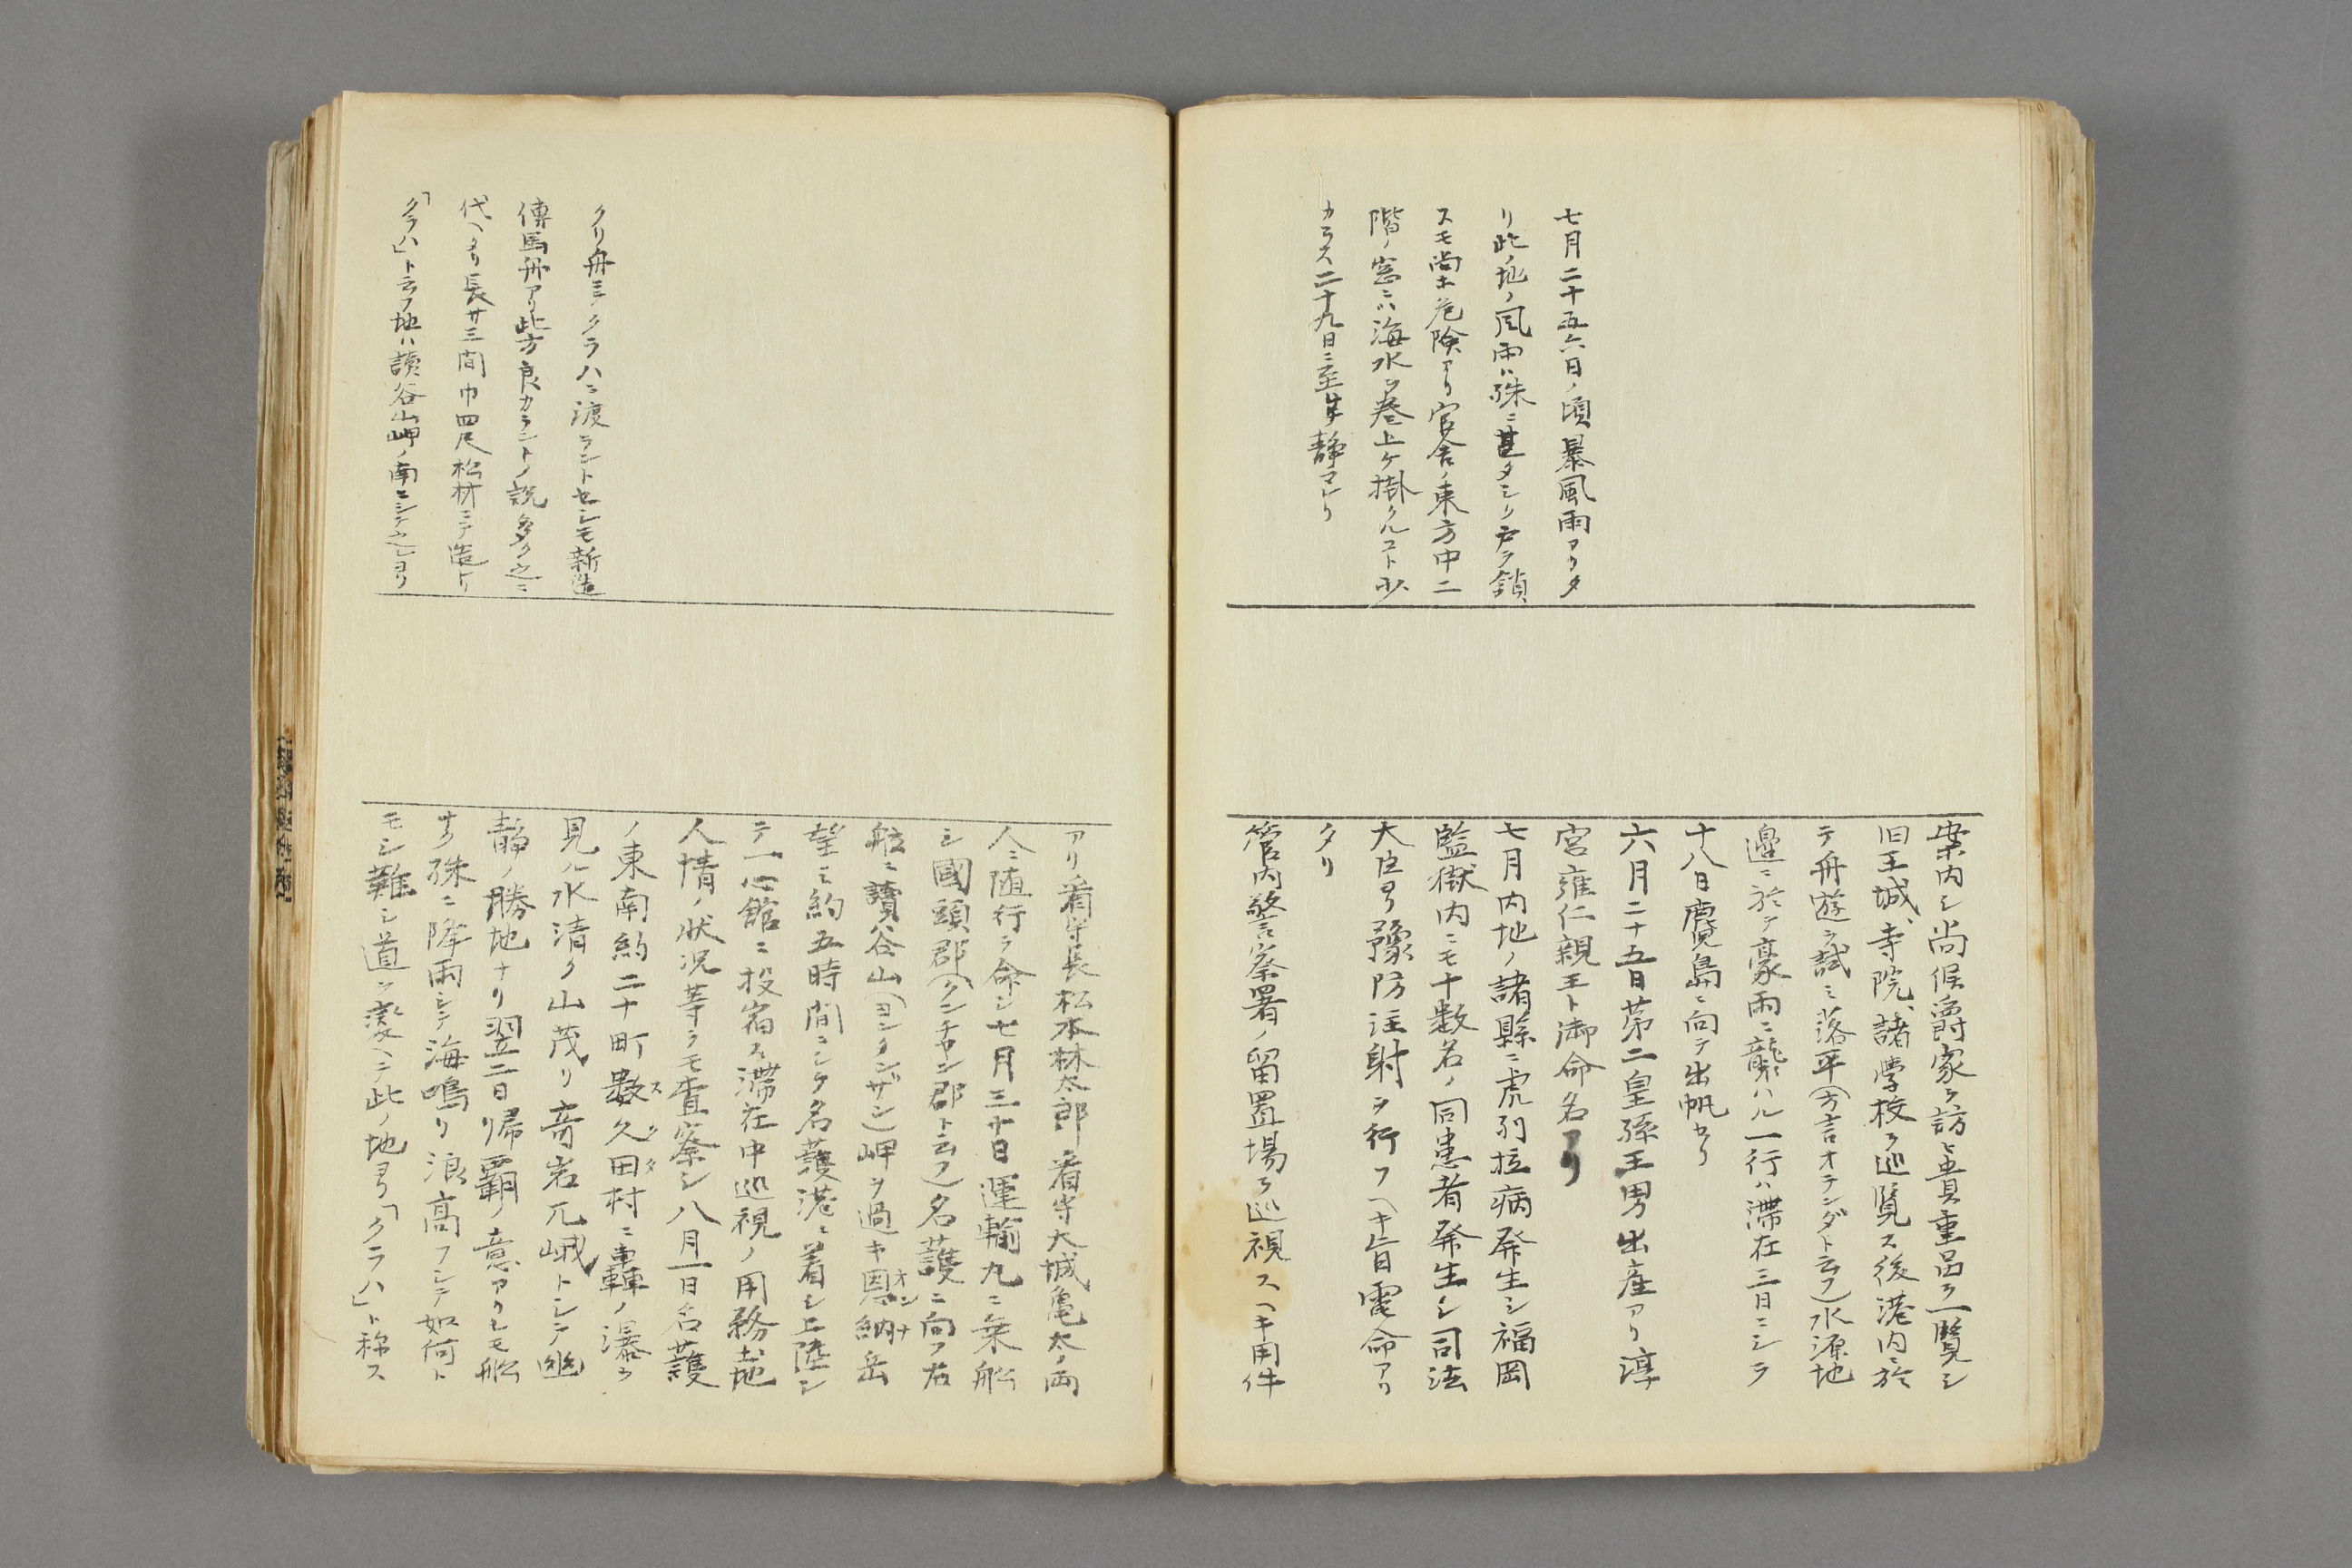 七月二十五六日ノ頃暴風雨アリタ
リ此ノ地ノ風雨ハ殊ニ甚タシリ戸ヲ鎖
スモ尚ホ危険アリ官舎ノ東方中二
階ノ窓ニハ海水ヲ巻上ケ掛クルコト少
カラス二十九日ニ至リ静マレリ
案内シ尚侯爵家ヲ訪ヒ貴重品ヲ一覧シ
旧王城、寺院、諸学校ヲ巡覧ス後港内ニ於
テ舟遊ヲ試ミ落平(方言オテンダト云フ)水源地
邊ニ於テ豪雨ニ襲ハル一行ハ滞在三日ニシテ
十八日麑島ニ向テ出帆セリ
六月二十五日第二皇孫王男出産アリ淳
宮雍仁親王ト御命名アリ
七月内地ノ諸縣ニ虎列拉病発生シ福岡
監獄内ニモ十数名ノ同患者発生シ司法
大臣ヨリ豫防注射ヲ行フヘキ旨電命アリ
タリ
管内警察署ノ留置場ヲ巡視スヘキ用件
クリ舟ニテクラハニ渡ラントセシモ新造
傳馬舟アリ此方良カラントノ説多ク之ニ
代ヘタリ長サ三間巾四尺松材ニテ造レリ
「クラハ」ト云フ地ハ讀谷山岬ノ南ニシテ之レヨリ
アリ看守長松本林太郎看守大城亀太ノ両
人ニ随行ヲ命シ七月三十日運輸丸ニ乗船
シ國頭郡(クンチャン郡ト云フ)名護ニ向フ右
舷ニ讀谷山(ヨンタンザン)岬ヲ過キ恩納岳
オンナ
望ミ約五時間ニシテ名護港ニ着シ上陸シ
テ一心館ニ投宿ス滞在中巡視ノ用務土地
人情ノ状况等ヲモ査察シ八月一日名護
ノ東南約二十町数久田村ニ轟ノ瀑ヲ
スクタ
見ル水清ク山茂リ奇岩兀峨トシテ幽
静ノ勝地ナリ翌二日帰覇ノ意アリシモ船
ナク殊ニ降雨シテ海鳴リ浪高フシテ如何ト
モシ難シ道ヲ変ヘテ此ノ地ヨリ「クラハ」ト称ス